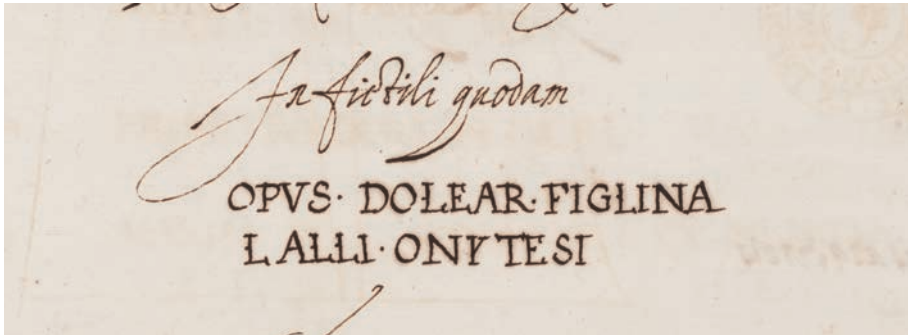 In fictili quodam
OPVS· DOLEAR·FIGLINA
LALLI·ONYTESI